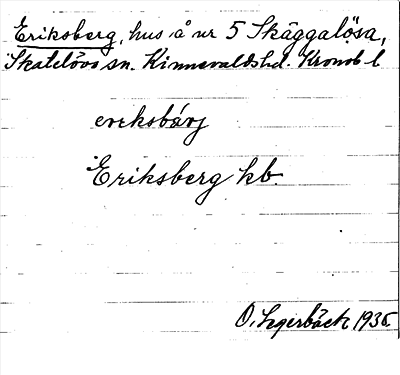 Eriksberg, hus å nr 5 Skäggalösa,
Skatelövs sn. Kinnevalds hd. Kronob l
Eriksberg kb.
O. Lagerbäck